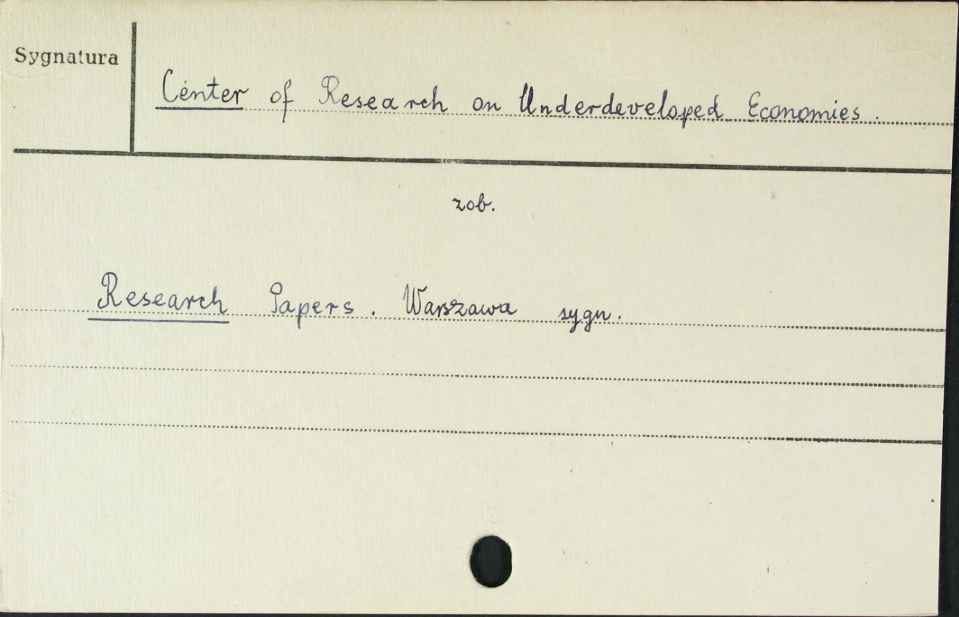 Sygnatura
Center of Research on Underdeveloped Economies.
zob.
Research Papers. Warszawa sygn.